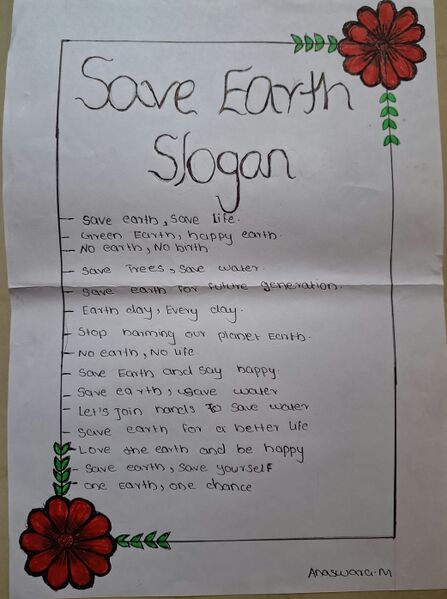 Save Earth
Slogan
– Save earth, Save life.
– Green Earth, happy earth.
– No earth, No birth
– Save Trees, Save water.
– Save earth for future generation.
– Earth day, Every day.
– Stop harming our planet Earth.
– No earth, No life.
– Save Earth and say happy.
– Save earth, save water
– Let's Join hands To save water
– Save earth for a better life
– Love the earth and be happy
– Save earth, Save yourself
– One Earth, one chance
Anaswara.M